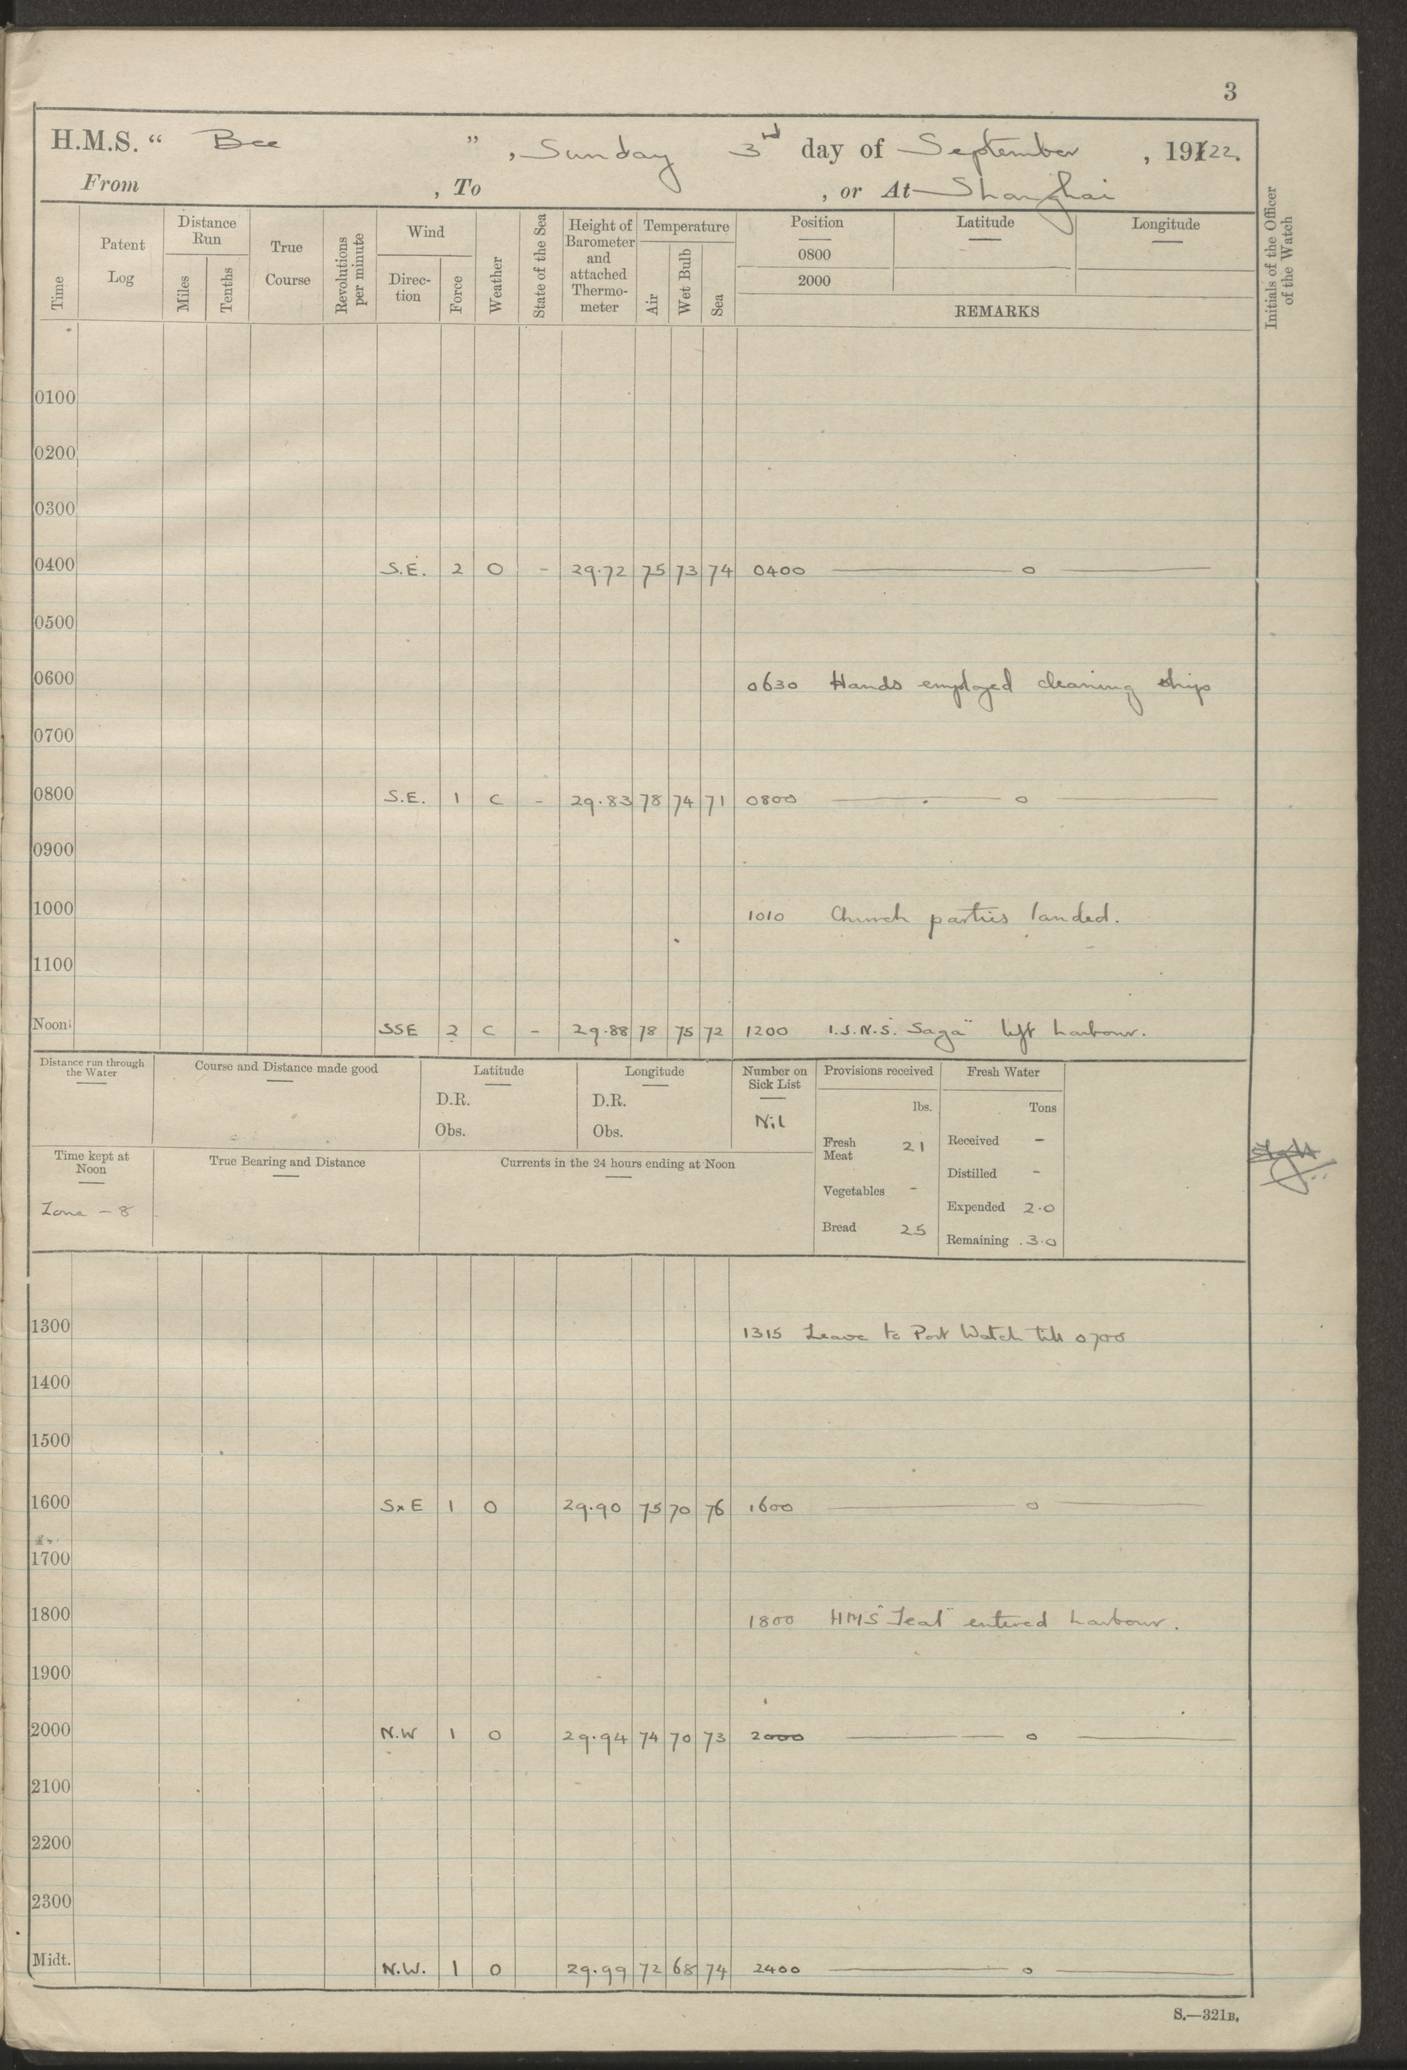 3
H.M.S. “ Bee ”, Sunday 3rd day of September, 1922.
From , To , or At Shanghai
Time
Patent Log
Distance Run
Miles
Tenths
True Course
Revolutions per minute
Wind
Direction
Force
Weather
State of the Sea
Height of Barometer and attached Thermometer
Temperature
Air
Wet Bulb
Sea
Position
Latitude
Longitude
0800
2000
REMARKS
Initials of the Officer of the Watch
0100
0200
0300
0400 S.E. 2 O - 29.72 75 73 74 0400 —— o ——
0500
0600
0630 Hands employed cleaning ship
0700
0800 S.E. 1 C - 29.83 78 74 71 0800 —— o ——
0900
1000 1010 Church parties landed.
1100
Noon SSE 2 C - 29.88 78 75 72 1200 I.J.N.S. "Saga" left harbour.
Distance run through the Water
Course and Distance made good
Latitude
D.R.
Obs.
Longitude
D.R.
Obs.
Number on Sick List
Nil
Provisions received
lbs.
Fresh Meat 21
Vegetables -
Bread 25
Fresh Water
Tons
Received -
Distilled -
Expended 2.0
Remaining 3.0
Time kept at Noon
Zone - 8
True Bearing and Distance
Currents in the 24 hours ending at Noon
1300 1315 Leave to Port Watch till 0700
1400
1500
1600 SxE 1 O 29.90 75 70 76 1600 —— o ——
1700
1800 1800 HMS "Teal" entered harbour.
1900
2000 N.W 1 O 29.94 74 70 73 2000 —— o ——
2100
2200
2300
Midt. N.W. 1 O 29.99 72 68 74 2400 —— o ——
S.—321B.